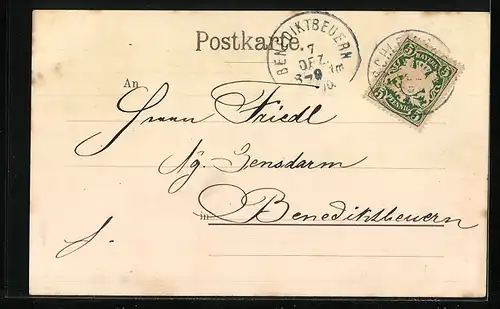 Postkarte.
BENEDIKTBEUERN
7
DEZ.
BAYERN
5 5
PFENNIG
An
Herrn Friedl
Kg. Gensdarm
in Benediktbeuern